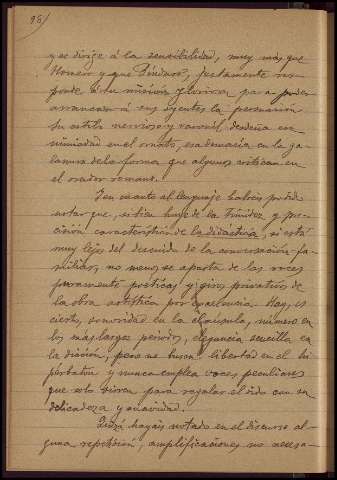 98)
y se dirige á la sensibilidad, muy más que
Homero y que Píndaro, justamente res-
ponde á su misión gloriosa para poder
arrancar á sus oyentes la persuasión
su estilo nervioso y varonil, desdeña esa
nimiedad en el ornato, esa demasía en la ga-
lanura de la forma que algunos critican en
el orador romano.
Y en cuanto al lenguaje habréis podido
notar que, si bien huye de la timidez y pre-
cisión característica de la didáctica, si está
muy lejos del descuido de la conversación fa-
miliar, no menos se aparta de las voces
puramente poéticas y giros privativos de
la obra artística por excelencia. Hay, es
cierto, sonoridad en la cláusula, número en
los más largos períodos, elegancia sencilla en
la dicción, pero no busca libertad en el hi-
pérbaton y nunca emplea voces peculiares
que solo sirven para regalar el oido con su
delicadeza y suavidad.
Quizá hayáis notado en el discurso al-
guna repetición, amplificaciones no necesa-